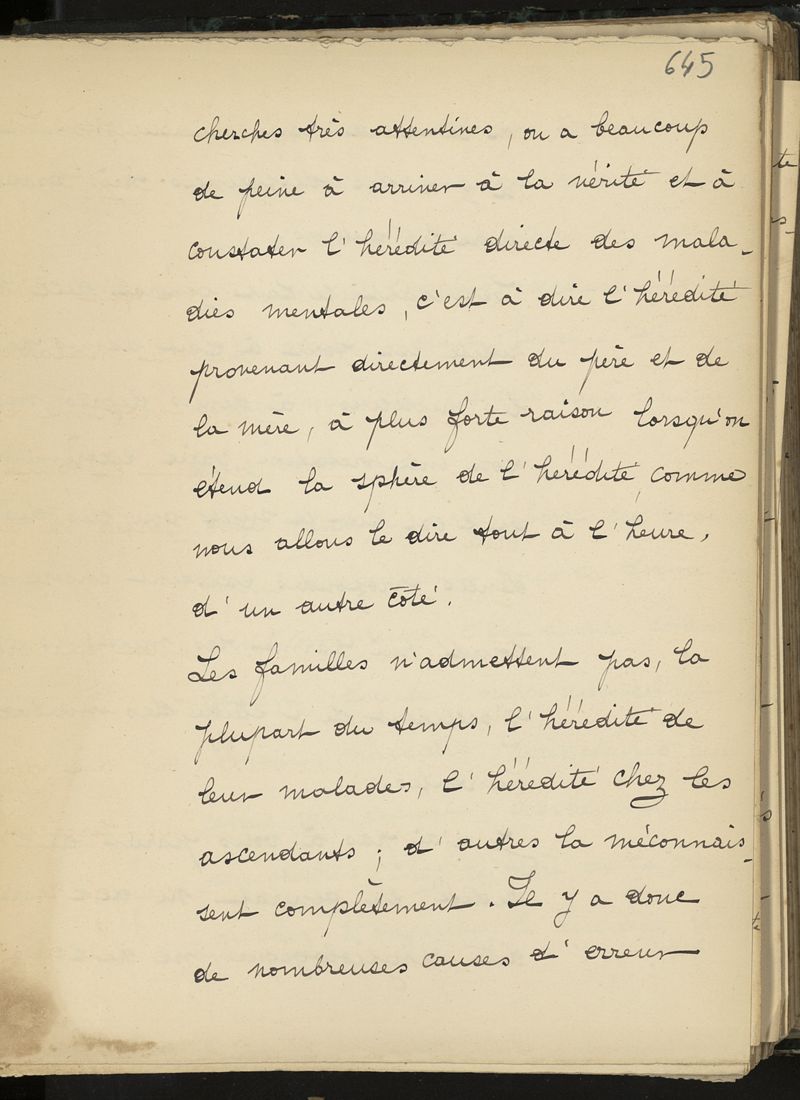 645
cherches très attentives, on a beaucoup
de peine à arriver à la vérité et à
constater l'hérédité directe des mala-
dies mentales, c'est à dire l'hérédité
provenant directement du père et de
la mère, à plus forte raison lorsqu'on
étend la sphère de l'hérédité, comme
nous allons le dire tout à l'heure,
d'un autre côté.
Les familles n'admettent pas, la
plupart du temps, l'hérédité de
leur malades, l'hérédité chez les
ascendants ; d'autres la méconnais-
sent complètement. Il y a donc
de nombreuses causes d'erreur